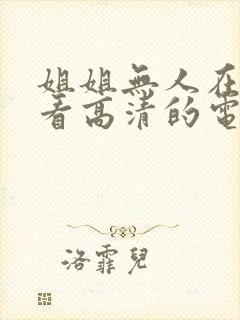 姐姐無人在
看高清的電
洛霏兒